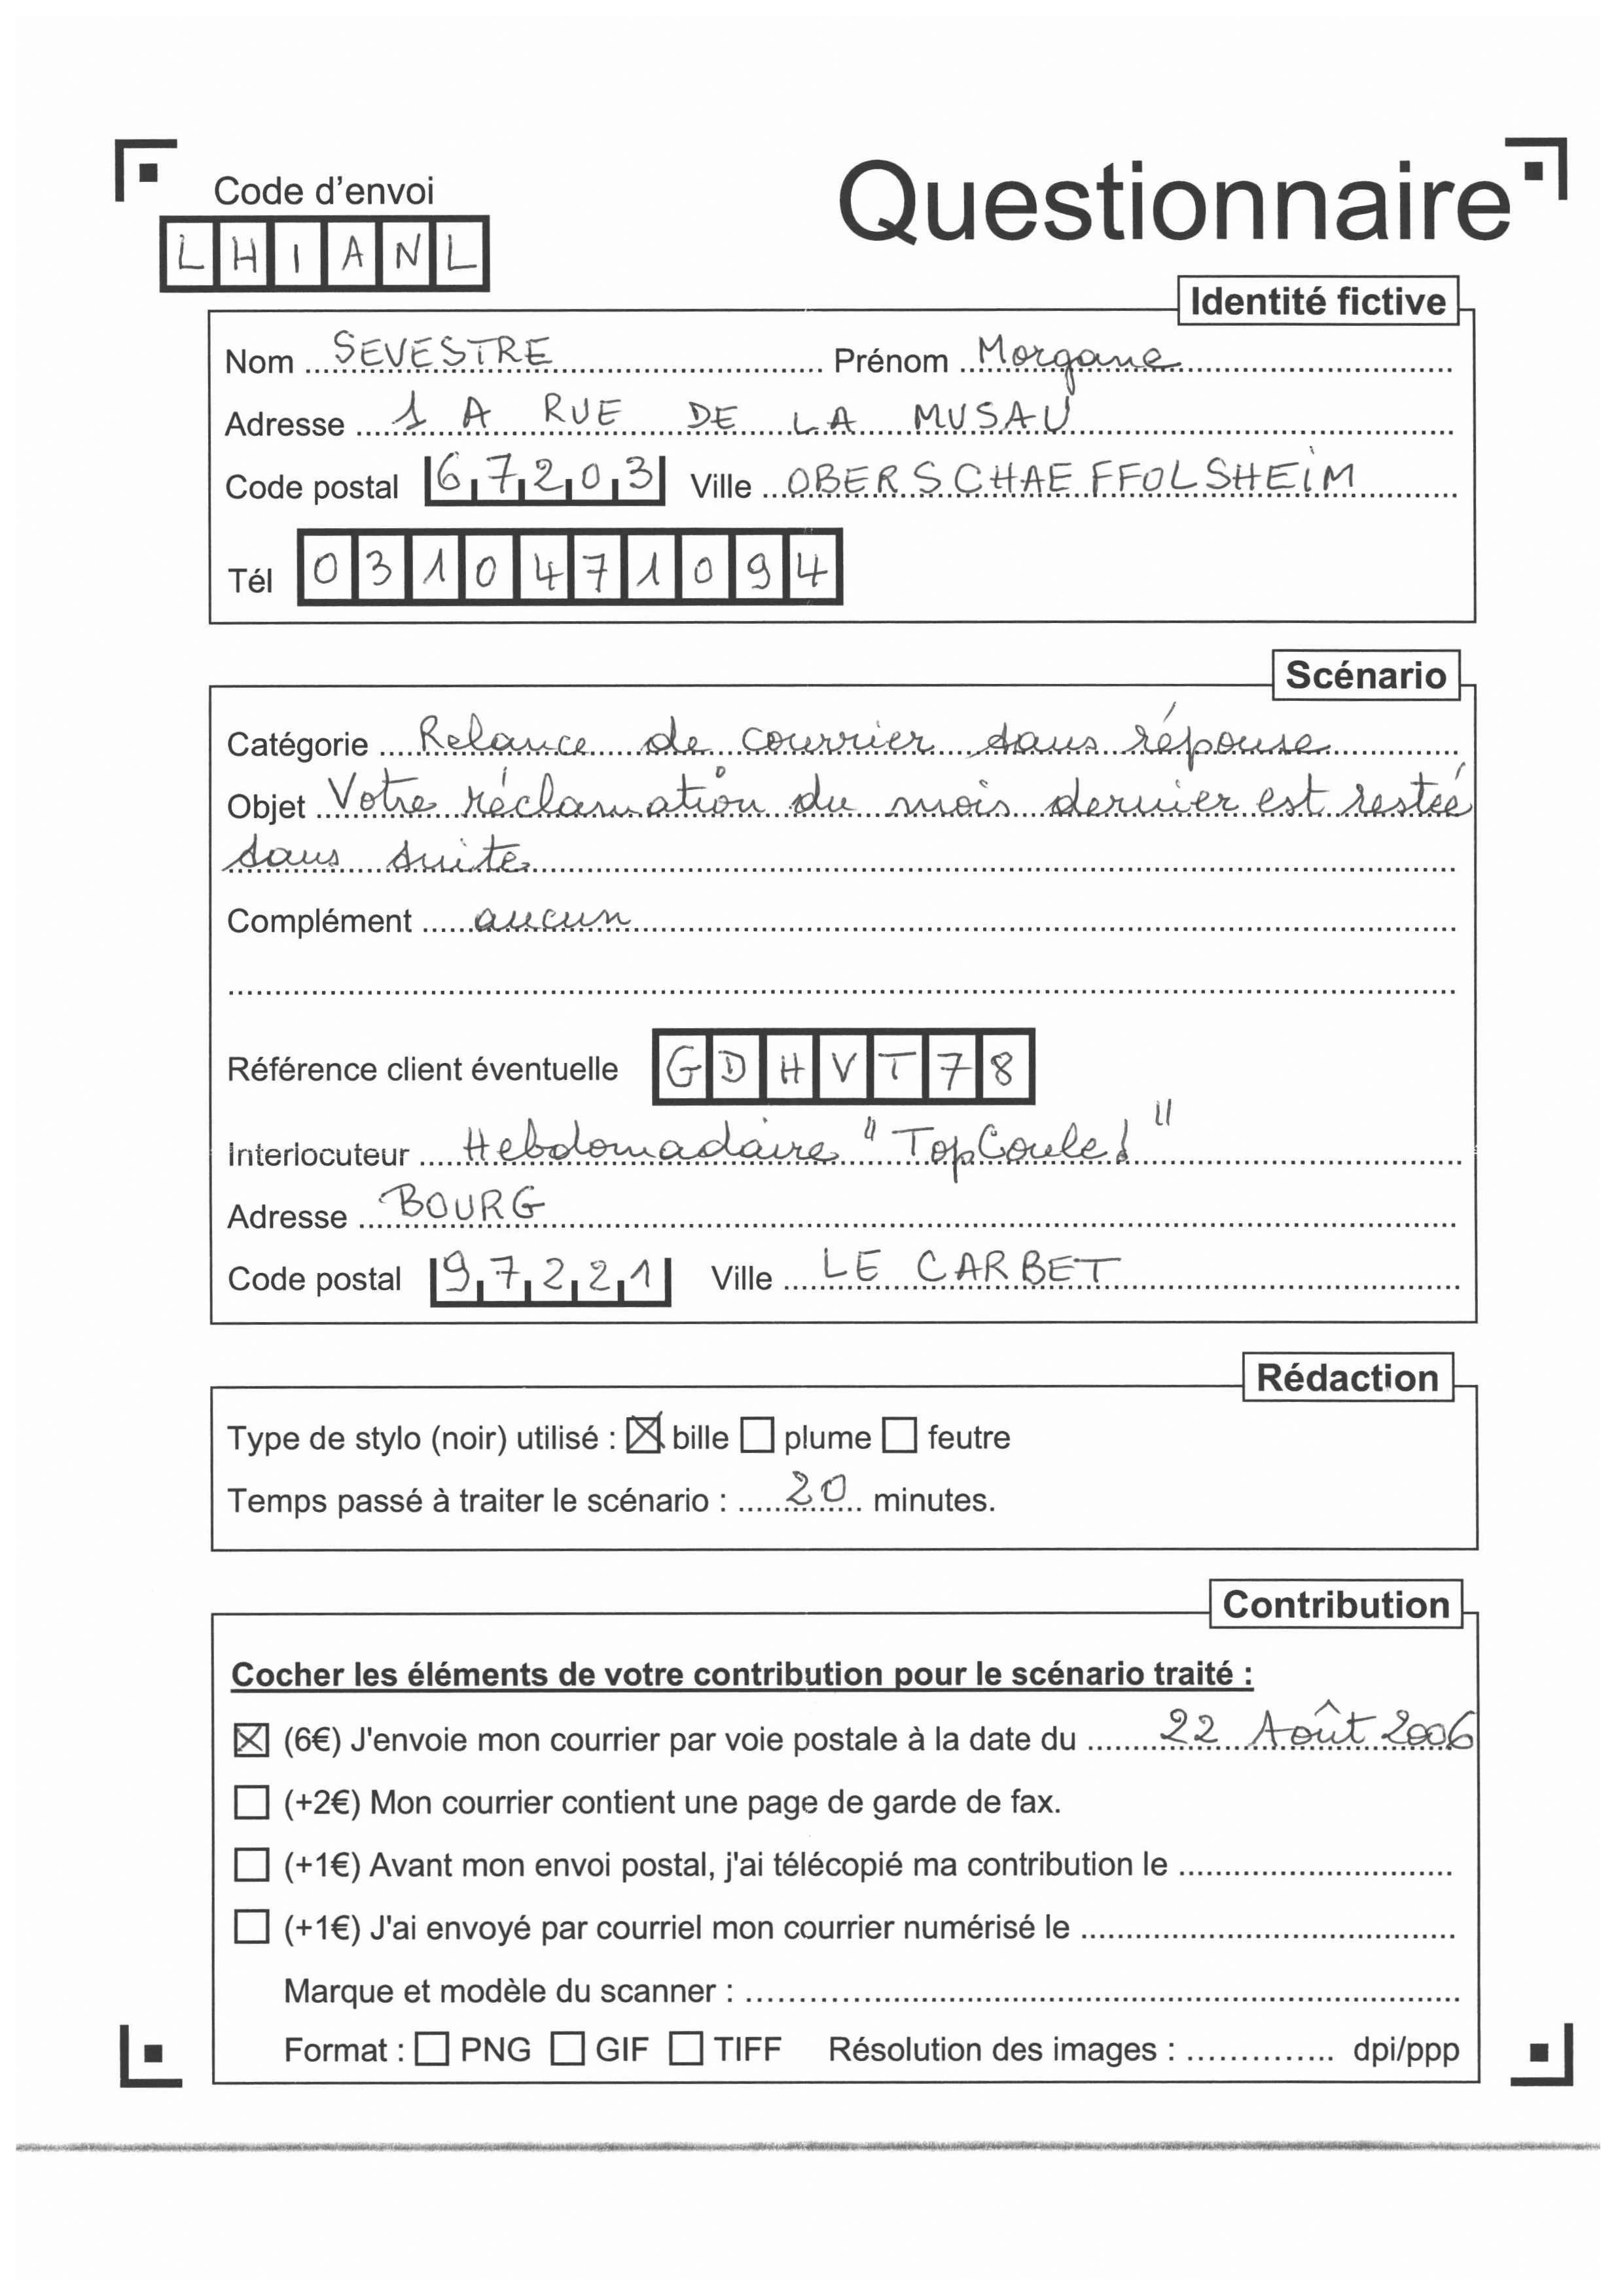 Code d'envoi
Questionnaire
L H I A N L
Identité fictive
Nom SEVESTRE Prénom Morgane
Adresse 1 A RUE DE LA MUSAU
Code postal 67203 Ville OBERSCHAEFFOLSHEIM
Tél 0310471094
Scénario
Catégorie Relance de courrier sans réponse
Objet Votre réclamation du mois dernier est restée
sans suite
Complément aucun
Référence client éventuelle GDHVT78
Interlocuteur Hebdomadaire "TopCoule!"
Adresse BOURG
Code postal 97221 Ville LE CARBET
Rédaction
Type de stylo (noir) utilisé : ☒ bille ☐ plume ☐ feutre
Temps passé à traiter le scénario : 20 minutes.
Contribution
Cocher les éléments de votre contribution pour le scénario traité :
☒ (6€) J'envoie mon courrier par voie postale à la date du 22 Août 2006
☐ (+2€) Mon courrier contient une page de garde de fax.
☐ (+1€) Avant mon envoi postal, j'ai télécopié ma contribution le
☐ (+1€) J'ai envoyé par courriel mon courrier numérisé le
Marque et modèle du scanner :
Format : ☐ PNG ☐ GIF ☐ TIFF Résolution des images : dpi/ppp